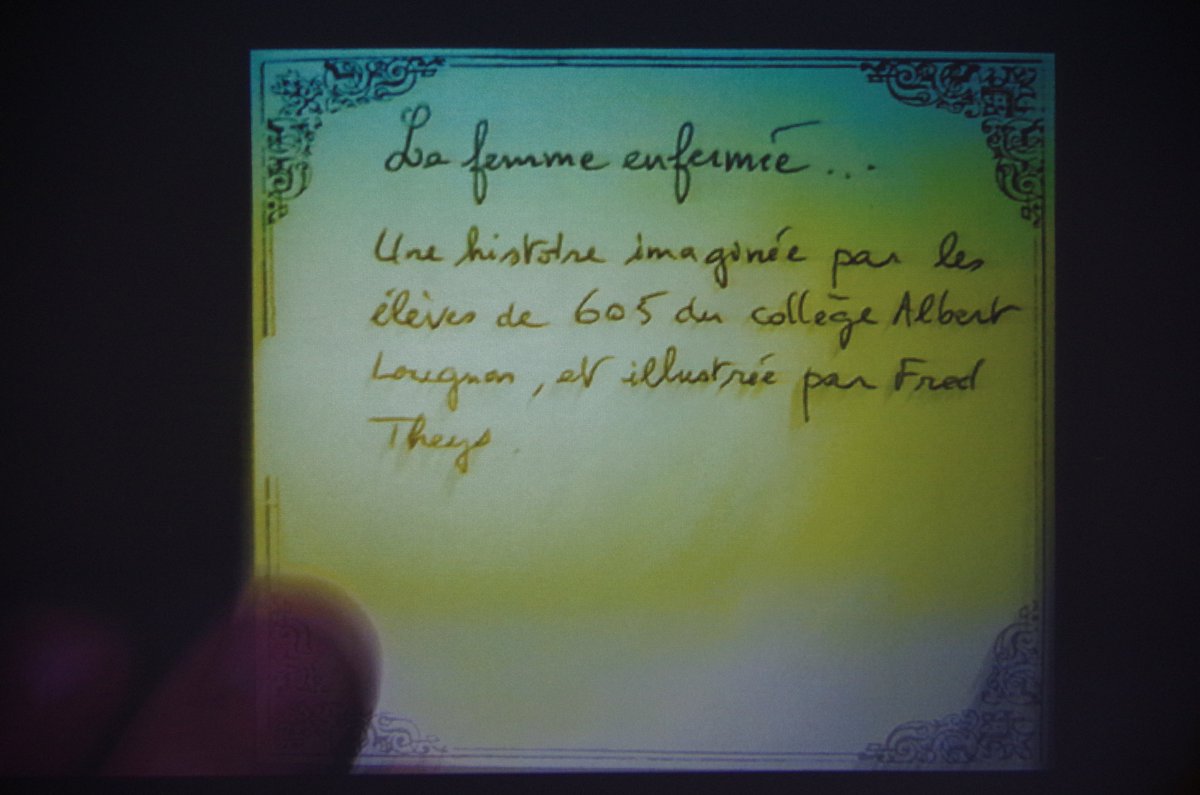 La femme enfermée...
Une histoire imaginée par les
élèves de 605 du collège Albert
Lougnon, et illustrée par Fred
Theys.